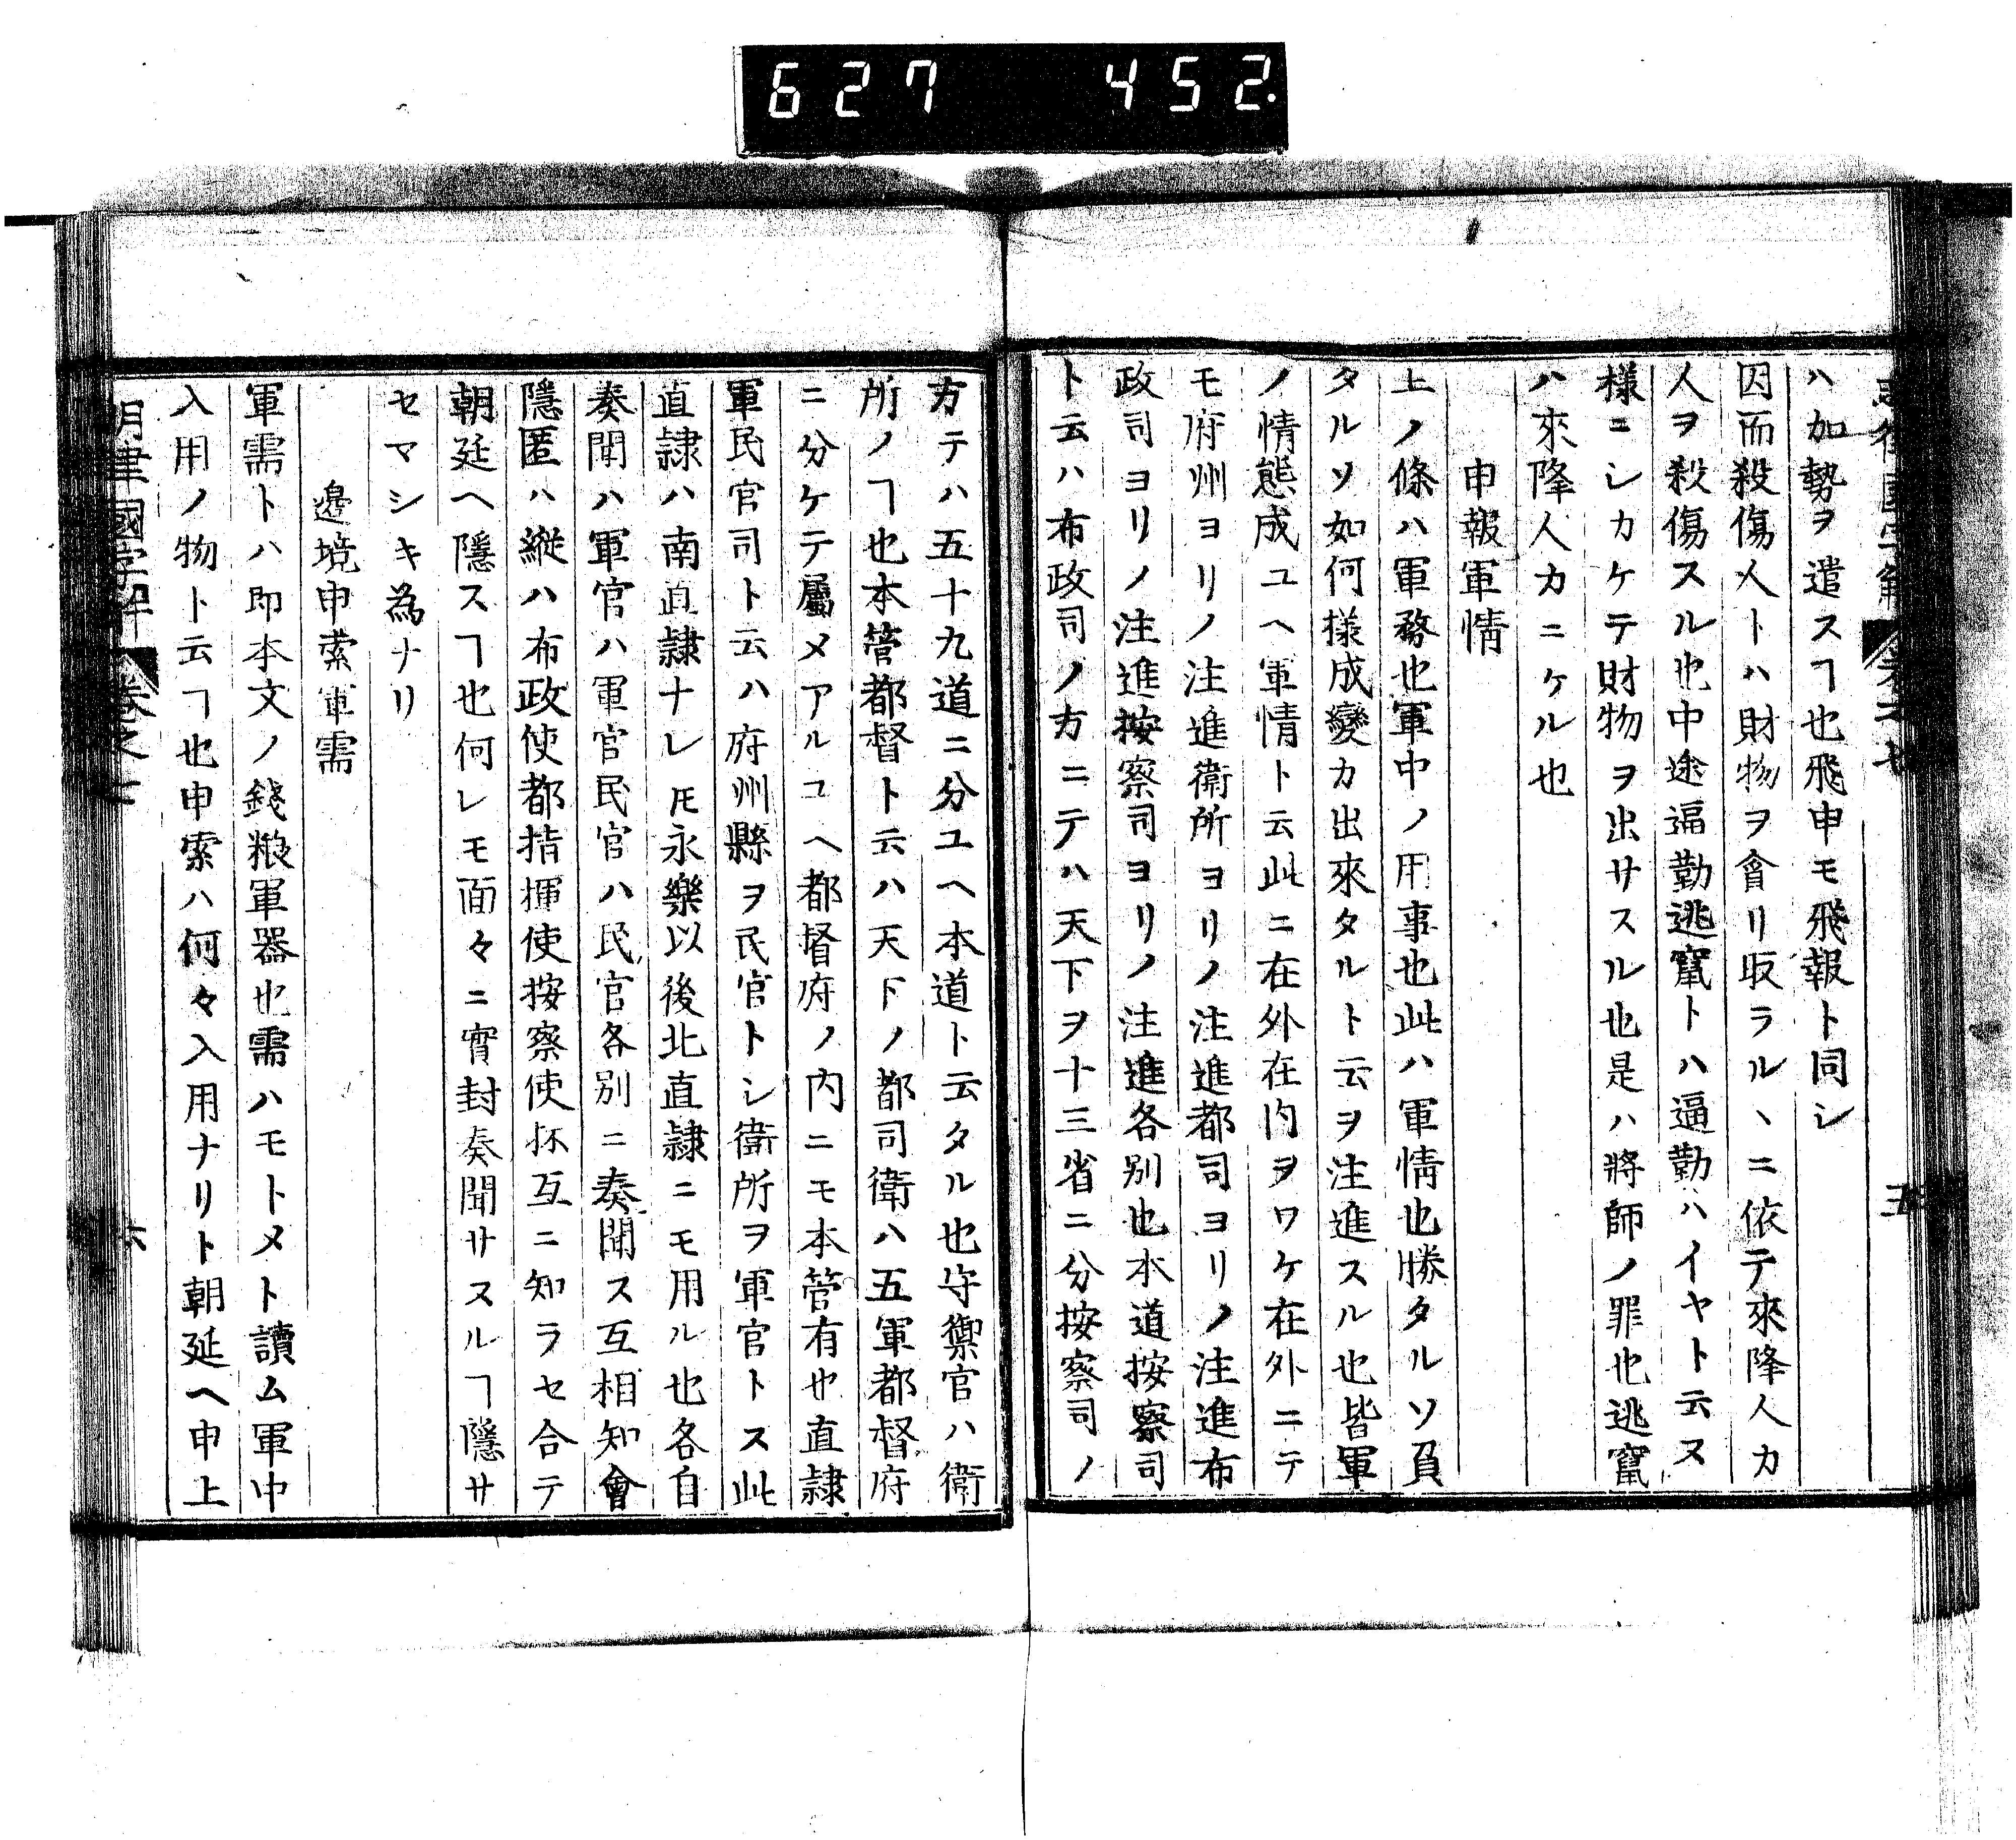 627 452.
ハ加勢ヲ遣スヿ也飛申モ飛報ト同シ
因而殺傷人トハ財物ヲ貪リ取ラルヽニ依テ來降人カ
人ヲ殺傷スル也中途逼勒逃竄トハ逼勒ハイヤト云ヌ
樣ニシカケテ財物ヲ出サスル也是ハ將師ノ罪也逃竄
ハ來降人カニケル也
申報軍情
上ノ條ハ軍務也軍中ノ用事也此ハ軍情也勝タルソ負
タルソ如何樣成變カ出來タルト云ヲ注進スル也皆軍
ノ情態成ユヘ軍情ト云此ニ在外在内ヲワケ在外ニテ
モ府州ヨリノ注進衛所ヨリノ注進都司ヨリノ注進布
政司ヨリノ注進按察司ヨリノ注進各别也本道按察司
ト云ハ布政司ノ方ニテハ天下ヲ十三省ニ分按察司ノ
方テハ五十九道ニ分ユヘ本道ト云タル也守禦官ハ衛
所ノヿ也本管都督ト云ハ天下ノ都司衛ハ五軍都督府
ニ分ケテ屬メアルユヘ都督府ノ内ニモ本管有也直隷
軍民官司ト云ハ府州縣ヲ民官トシ衛所ヲ軍官トス此
直隷ハ南直隷ナレ𪜈永樂以後北直隷ニモ用ル也各自
奏聞ハ軍官ハ軍官民官ハ民官各别ニ奏聞ス互相知會
隱匿ハ縦ハ布政使都指揮使按察使抔互ニ知ラセ合テ
朝廷ヘ隱スヿ也何レモ面々ニ實封奏聞サスルヿ隱サ
セマシキ為ナリ
邉境申索軍需
軍需トハ即本文ノ錢粮軍器也需ハモトメト讀ム軍中
入用ノ物ト云ヿ也申索ハ何々入用ナリト朝延ヘ申上
明律國字解 卷之七 六